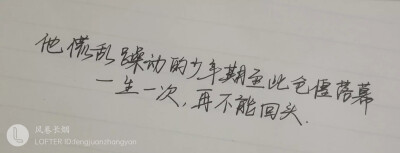 他慌乱躁动的少年期至此仓促落幕
一生一次，再不能回头.
风卷长烟
LOFTER ID:fengjuanzhangyan